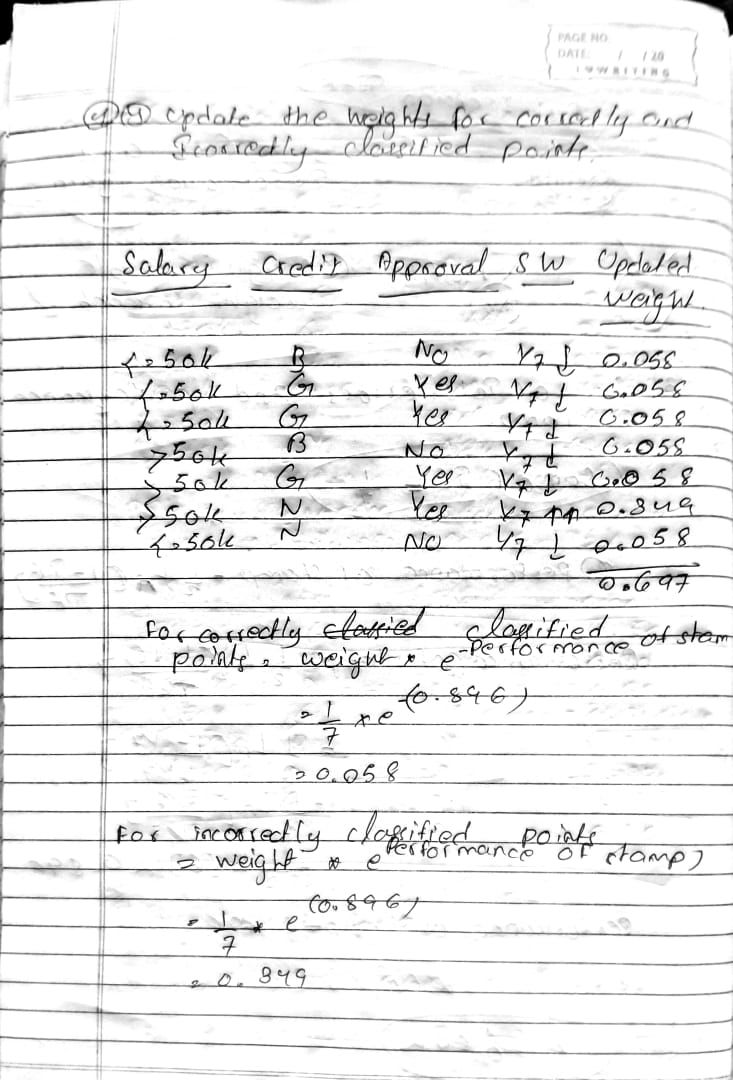 PAGE NO.
DATE: / /20
Update the weights for correctly and
Incorrectly classified points.
Salary Credit Approval SW Updated
weight
<=50k B No 1/7 ↓ 0.058
<=50k G Yes 1/7 ↓ 0.058
<=50k G Yes 1/7 ↓ 0.058
>50k B No 1/7 ↓ 0.058
>50k G Yes 1/7 ↓ 0.058
>50k N Yes 1/7 ↑↑ 0.349
<=50k N No 1/7 ↓ 0.058
0.697
For correctly classied classified
points = weight * e -Performance of stam
= 1/7 * e -(0.896)
= 0.058
For incorrectly classified points
= weight * e Performance of stamp)
= 1/7 * e (0.896)
= 0.349